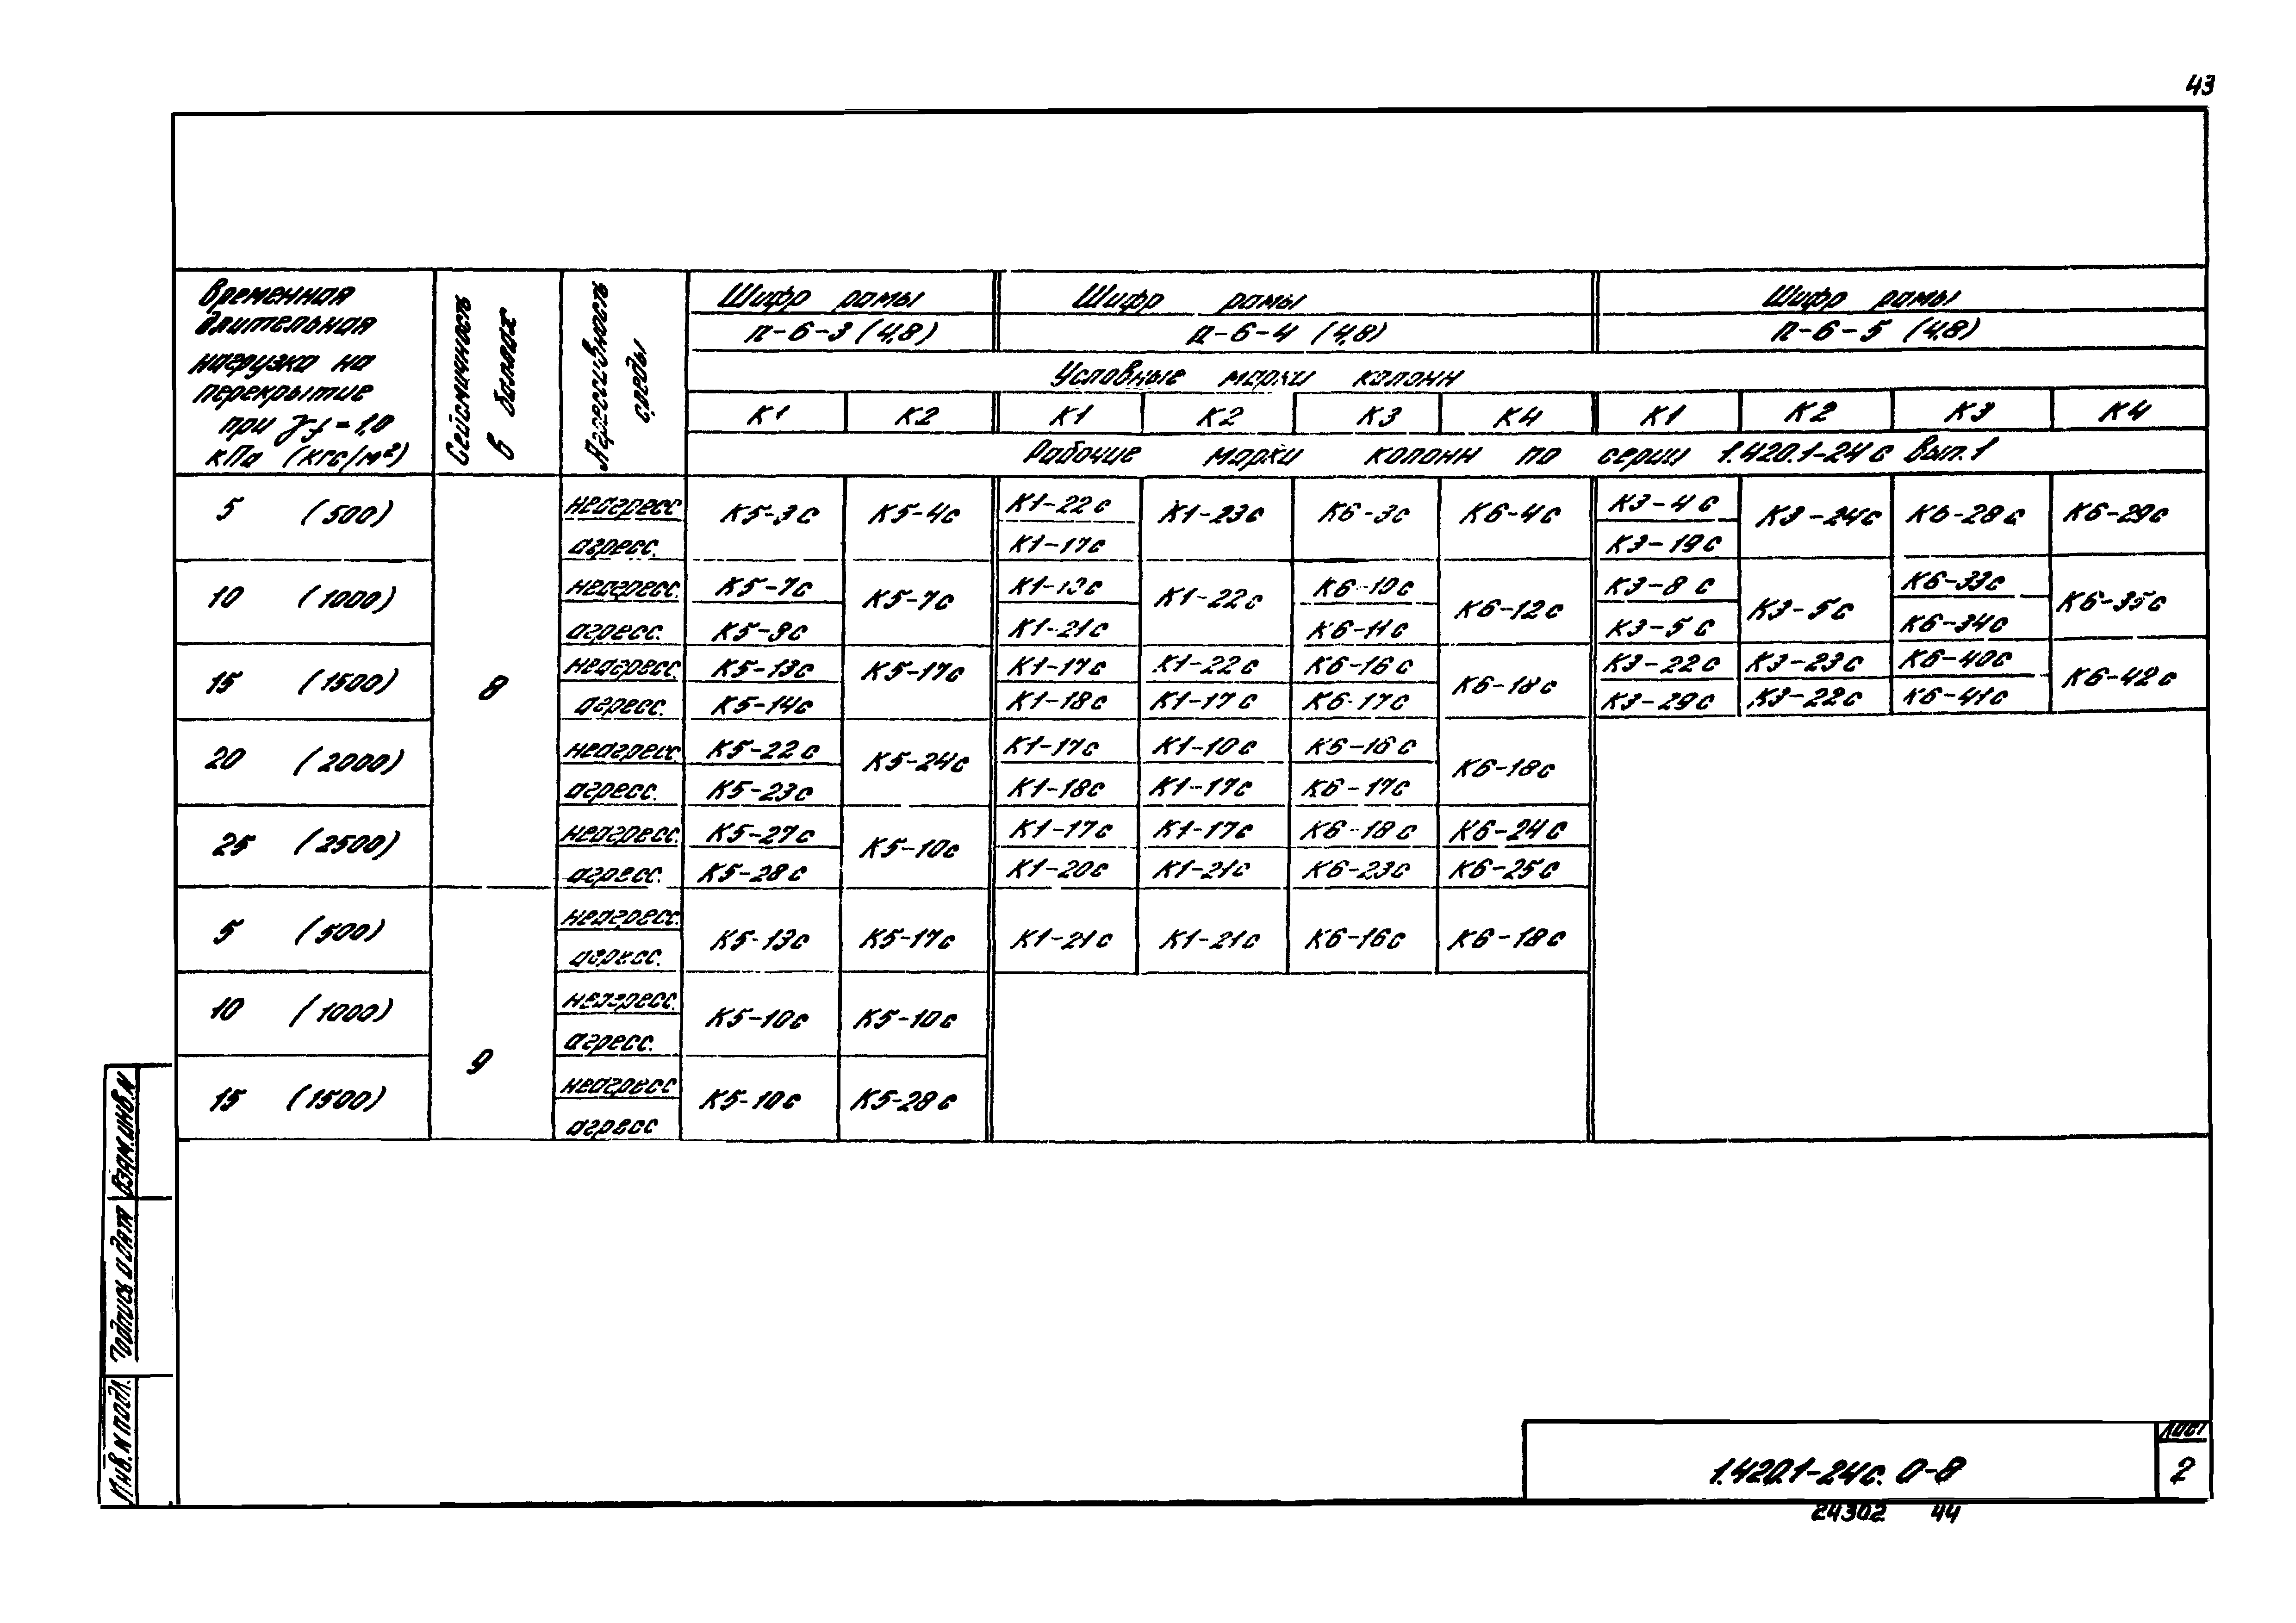 43
Временная
длительная
нагрузка на
перекрытие
при γf = 1,0
кПа (кгс/м²)
Сейсмичность
в баллах
Агрессивность
среды
Шифр рамы
п-6-3 (4,8)
Шифр рамы
п-6-4 (4,8)
Шифр рамы
п-6-5 (4,8)
Условные марки колонн
К1 К2 К1 К2 К3 К4 К1 К2 К3 К4
Рабочие марки колонн по серии 1.420.1-24с Вып.1
5 (500)
8
неагресс.
агресс.
К5-3с К5-4с
К1-22с
К1-17с
К1-23с К6-3с К6-4с
К3-4с
К3-19с
К3-24с К6-28с К6-29с
10 (1000)
неагресс.
агресс.
К5-7с
К5-9с
К5-7с
К1-21с
К1-22с
К6-10с
К6-11с
К6-12с
К3-8с
К3-5с
К3-5с
К6-33с
К6-34с
К6-35с
15 (1500)
неагресс.
агресс.
К5-13с
К5-14с
К5-17с
К1-17с
К1-18с
К1-22с
К1-17с
К6-16с
К6-17с
К6-18с
К3-22с
К3-29с
К3-23с
К3-22с
К6-40с
К6-41с
К6-42с
20 (2000)
неагресс
агресс.
К5-22с
К5-23с
К5-24с
К1-17с
К1-18с
К1-10с
К1-17с
К6-16с
К6-17с
К6-18с
25 (2500)
неагресс.
агресс.
К5-27с
К5-28с
К5-10с
К1-17с
К1-20с
К1-17с
К1-21с
К6-18с
К6-23с
К6-24с
К6-25с
5 (500)
9
неагресс.
агресс.
К5-13с К5-17с К1-21с К1-21с К6-16с К6-18с
10 (1000)
неагресс.
агресс.
К5-10с К5-10с
15 (1500)
неагресс
агресс
К5-10с К5-28с
Взам.инв.N
Подпись и дата
Инв.N подл.
1.420.1-24с. 0-8
Лист
2
24302 44